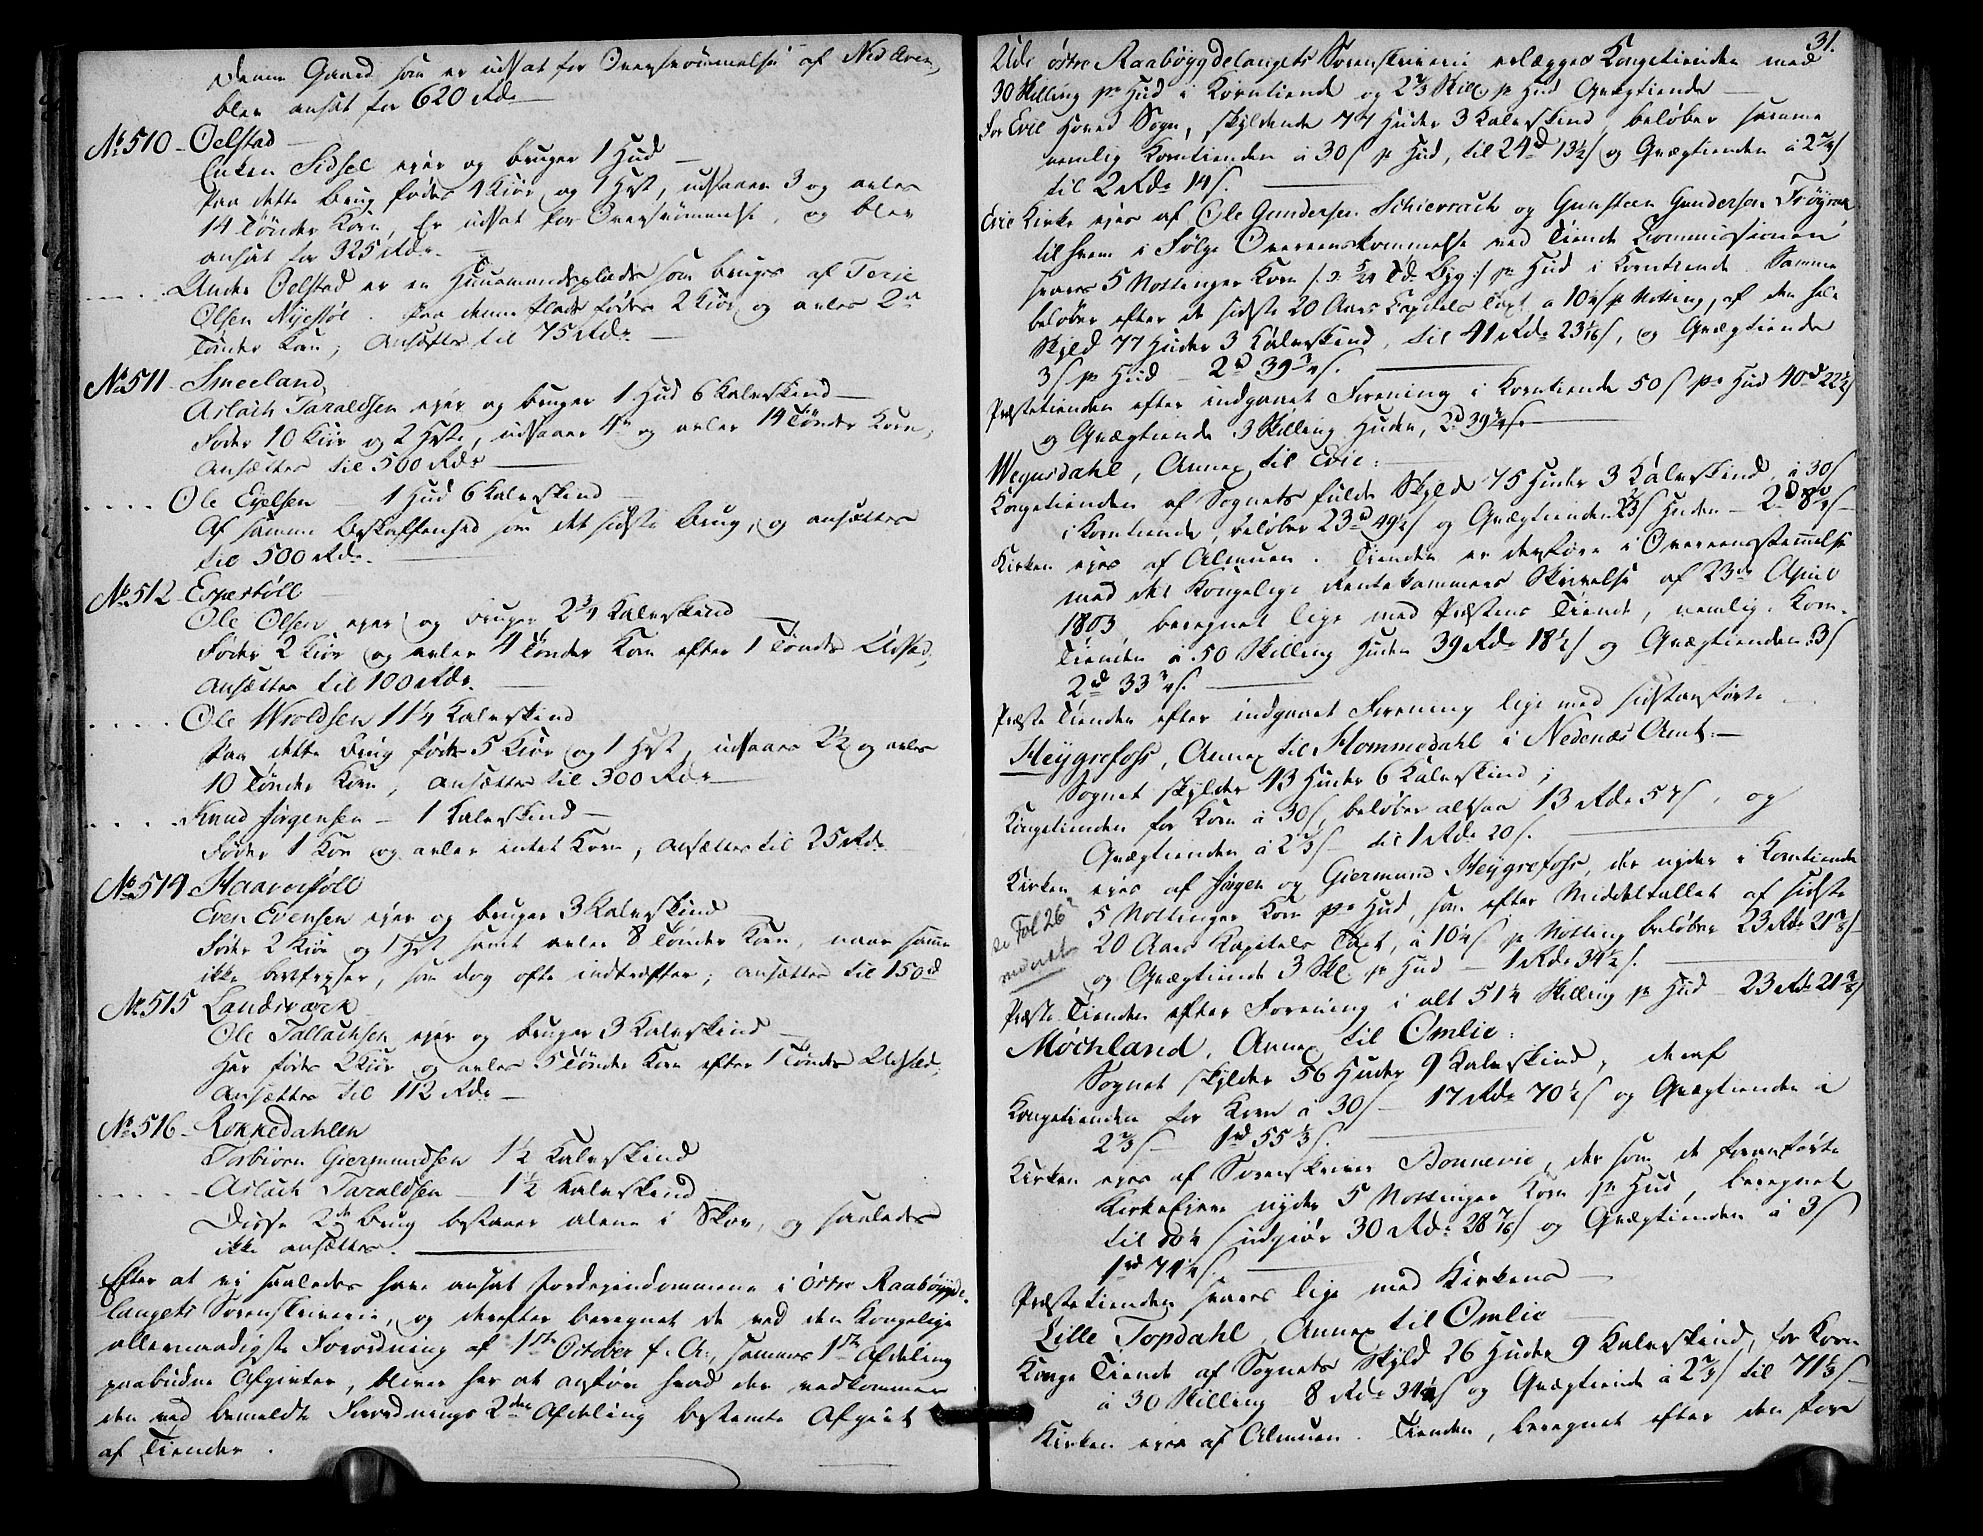 denne Gaard som er udsat for Oversvømmelse af Nid Elven,
blev ansat for 620 Rdr
No 510 Oelstad
Enken Sidsel ejer og bruger 1 Hud
Paa dette Brug fødes 4 Kiør og 1 Hest, udsaaes 3 og avles
14 Tønder Korn, Er udsat for Oversvømmelse, og blev
ansat for 325 Rdr.
Under Oelstad er en Huusmandsplads som bruges af Terje
Olsen Nyestøl. Paa denne Plads fødes 2 Kiør og avles 2
Tønder Korn; Ansættes til 75 Rdr
No 511 Smeeland
Aslach Taraldsen ejer og bruger 1 Hud 6 Kalvskind
Føder 10 Kiør og 2 Heste, udsaaer 4 og avler 14 Tønder Korn,
Ansættes til 500 Rdr
Ole Ejelsen 1 Hud 6 Kalvskind
Af samme Beskaffenhed som det sidste Brug, og ansættes
til 500 Rdr.
No 512 Espestøll
Ole Olsen ejer og bruger 2 3/4 Kalvskind
Føder 2 Kiør og avler 4 Tønder Korn efter 1 Tøndes Udsæd,
Ansættes til 100 Rdr.
Ole Wroldsen 11 1/4 Kalvskind
Paa dette Brug fødes 5 Kiør og 1 Hest, udsaaes 2 1/2 og avles
10 Tønder Korn, ansættes til 300 Rdr
Knud Jørgensen - 1 Kalvskind
Føder 1 Koe og avler intet Korn, ansættes til 25 Rdr
No 514 Haaverstøll
Even Evensen ejer og bruger 3 Kalvskind
Føder 2 Kiør og 1 Hest samt avler 8 Tønder Korn, naar samme
ikke bortfryser, som dog ofte indtræffer; ansættes til 150 rd
No 515 Landsværk
Ole Tallachsen ejer og bruger 3 Kalvskind
Her fødes 2 Kiør og avles 5 Tønder Korn efter 1 Tøndes Udsæd,
Ansættes til 112 Rdr
No 516 Rokkedahlen
Torbiørn Giermundsen 1 1/2 Kalvskind
Aslach Taraldsen 1 1/2 Kalvskind
Disse 2de Brug bestaaer alene i Skov, og saaledes
ikke ansættes.
Efter at vi saaledes have ansat Jordejendommene i østre Raabøygde-
langets Sorenskriverie, og derefter beregnet de ved den Kongelige
allernaadigste Forordning af 1ste October f. A., sammes 1ste Afdeling
paabudne Afgivter, bliver her at anføre hvad der vedkommer
den ved bemeldte Forordnings 2den Afdeling bestemte Afgivt
af Tiender.
31.
Udi østre Raabøygdelangets Sorenskriverie erlægges Kongetienden med
30 Skilling pr Hud i Korntiende og 2 2/3 Skill pr Hud Qvægtiende
For Evie Hoved Sogn, skyldende 77 Huder 3 Kalvskind, beløber samme
nemlig Korntienden à 30 s pr Hud, til 24 rd 13 1/2 s og Qvægtienden à 2 2/3 s
til 2 Rdr 14 s.
Evie Kirke ejes af Ole Gundersen Schierrach og Gunsten Gundersen Frøyraa
til hvem i Følge Overeenskommelse ved Tiende Commissionen
svares 5 Nottinger Korn /: 5/24 Td. Byg :/ pr Hud i Korntiende. Samme
beløber efter de sidste 20 Aars Kapitels Taxt à 10 1/4 s pr Notting, af den hele
Skyld 77 Huder 3 Kalvskind, til 41 Rdr 23 1/16 s, og Qvægtiende
3 s pr Hud 2 rd 39 3/4 s.
Præstetienden efter indgaaet Forening i Korntiende 50 s pr Hud 40 rd 22 1/2 s
og Qvægtiende 3 Skilling Huden, 2 rd 39 3/4 s.
Wegusdahl, Annex til Evie:
Kongetienden af Sognets fulde Skyld 75 Huder 3 Kalvskind, à 30 s
i Korntiende, beløber 23 rd 49 1/2 s og Qvægtienden 2 2/3 s Huden - 2 rd 8 s
Kirken ejes af Almuen. Tienden er derfore i Overeensstemmelse
med det Kongelige Rentekammers Skrivelse af 23de April
1803 beregnet lige med Præstens Tiende, nemlig Korn-
Tienden à 50 Skilling Huden 39 Rdr 18 1/2 s og Qvægtienden 3 s
2 rd 33 3/4 s.
Præste Tienden efter indgaaet Forening lige med sidstanførte
Heygrefoss, Annex til Hommedahl i Nedenæs Amt:
Sognet skylder 43 Huder 6 Kalvskind,
Kongetienden for Korn à 30 s, beløber altsaa 13 Rdr 57 s, og
Qvægtienden à 2 2/3 s til 1 Rdr 20 s.
Kirken ejes af Jørgen og Giermund Heygrefoss, der nyder i Korntiende
5 Nottinger Korn pr Hud, som efter Middeltallet af sidste
20 Aars Kapitels Taxt, à 10 1/4 s pr Notting beløber 23 Rdr 21 3/8 s
og Qvægtiende 3 Skl pr Hud - 1 Rdr 34 1/2 s.
Fol 26
Præste Tienden efter Forening i alt 51 1/4 Skilling pr Hud 23 Rdr 21 3/8 s
Møchland, Annex til Omlie:
Sognet skylder 56 Huder 9 Kalvskind, deraf
Kongetienden for Korn à 30 s - 17 Rdr 70 1/2 s og Qvægtienden à
2 2/3 s 1 rd 55 1/3 s.
Kirken ejes af Sorenskriver Bonnevie, der som de foranførte
Kirkeejere nyder 5 Nottinger Korn pr Hud, beregnet
til 10 1/4 s udgiør 30 Rdr 28 7/16 s og Qvægtienden à 3 s
1 rd 74 1/4 s.
Præstetienden svares lige med Kirkens
Lille Topdahl, Annex til Omlie
Konge Tiende af Sognets Skyld 26 Huder 9 Kalvskind, for Korn
à 30 Skilling 8 Rdr 34 1/2 s og Qvægtiende à 2 2/3 s til 71 1/3 s
Kirken ejes af Almuen. Tienden, beregnet efter den fore